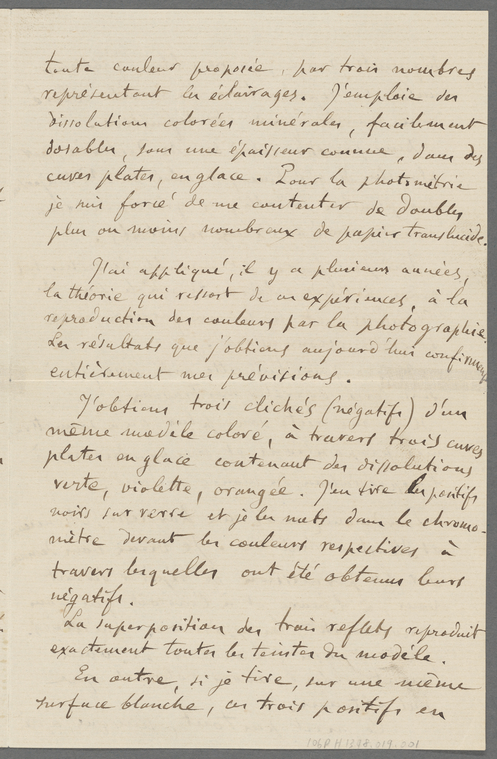 toute couleur proposée, par trois nombres
représentant les éclairages. J'emploie des
dissolutions colorées minérales, facilement
dosables, sous une épaisseur connue, dans des
cuves plates, en glace. Pour la photométrie
je suis forcé de me contenter de doubles
plus ou moins nombreux de papier translucide.
J'ai appliqué, il y a plusieurs années,
la théorie qui ressort de ces expériences, à la
reproduction des couleurs par la photographie.
Les résultats que j'obtiens aujourd'hui confirment
entièrement mes prévisions.
J'obtiens trois clichés (négatifs) d'un
même modèle coloré, à travers trois cuves
plates en glace contenant des dissolutions
verte, violette, orangée. J'en tire les positifs
noirs sur verre et je les mets dans le chromo-
mètre devant les couleurs respectives à
travers lesquelles ont été obtenus leurs
négatifs.
La superposition des trois reflets reproduit
exactement toutes les teintes du modèle.
En outre, si je tire, sur une même
surface blanche, ces trois positifs en